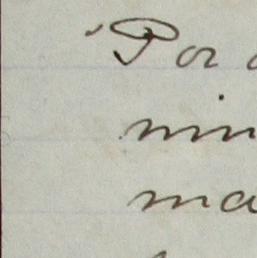 "Por
min
ma